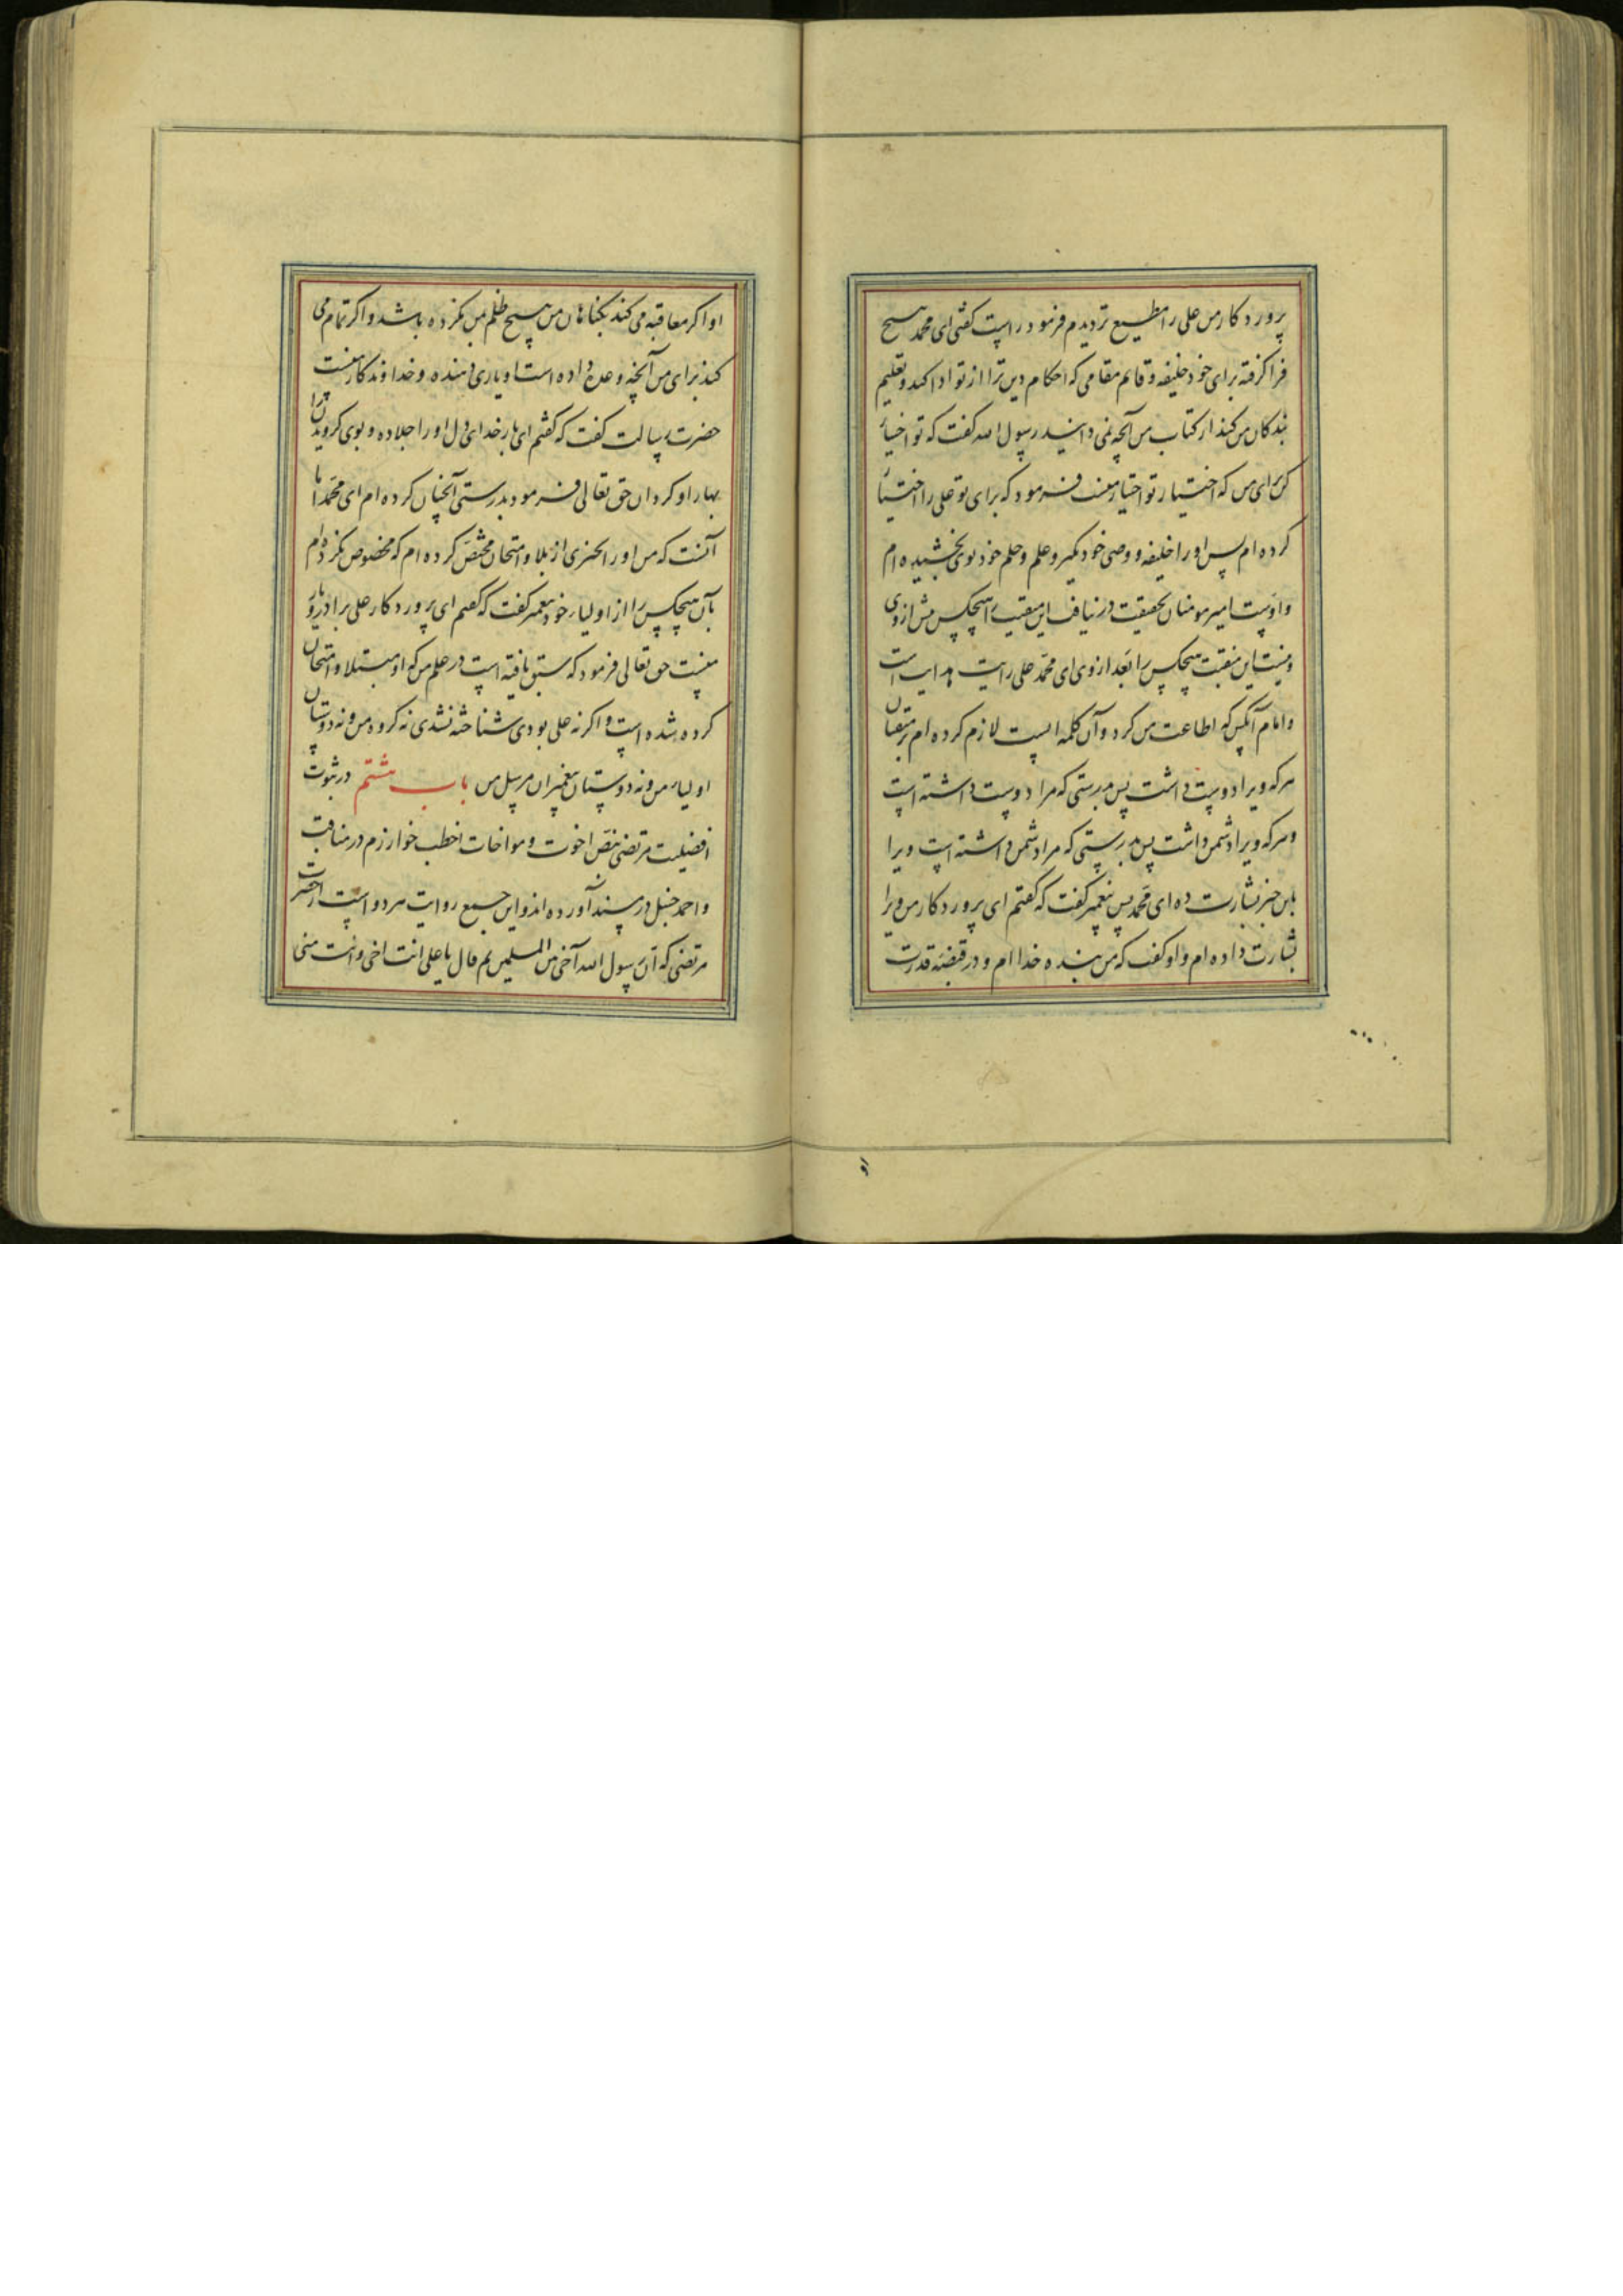 پرورد کار من علی را مطیع تر دیدم فرمود راست کفتی ای محمد هیچ
فرا کرفته برای خود خلیفه و قایم مقامی که احکام دین ترا از تو ادا کند و تعلیم
بندکان من کند از کتاب من آنچه نمی دانند رسول الله کفت که تو اختیار
کن برای من که اختیار تو اختیار منست فرمود که برای تو علی را اختیار
کرده ام پس او را خلیفه و وصی خود بگیر و علم و حلم خود بوی بخشیده ام
و اوست امیر مومنان بحقیقت در نیافت این منقبت را هیچکس پیش از وی
و نیست این منقبت هیچکس را بعد از وی ای محمد علی رایت هدایت است
و امام آنکس که اطاعت من کرد و آن کلمه ایست لازم کرده ام بر متقیان
هر که ویرا دوست داشت پس بدرستی که مرا دوست داشته است
و هر که ویرا دشمن داشت پس بدرستی که مرا دشمن داشته است ویرا
باین خبر بشارت ده ای محمد پس پیغمبر کفت که کفتم ای پرورد کار من ویرا
بشارت داده ام و او کفت که من بنده خدا ام و در قبضه قدرت
او اکر معاقبه می کند بکناهان من هیچ ظلم بمن نکرده باشد و اکر تمام می
کند برای من آنچه وعده داده است او یاری دهنده و خداوند کار منست
حضرت رسالت کفت که کفتم ای بار خدای دل او را جلا ده و بوی کرویدن را
بهار او کردان حق تعالی فرمود بدرستی آنچنان کرده ام ای محمد اما
آنست که من او را بچیزی از بلا و امتحان مختص کرده ام که مخصوص نکرده ام
بآن هیچکس را از اولیاء خود پیغمبر کفت که کفتم ای پرورد کار علی برادر و یار
منست حق تعالی فرمود که سبق یافته است در علم من که او مبتلا و امتحان
کرده شده است و اکر نه علی بودی شناخته نشدی نه کروه من و نه دوستان
اولیاء من و نه دوستان پیغمبران مرسل من باب هشتم در ثبوت
افضلیت مرتضی بنص اخوت و مواخات اخطب خوارزم در مناقب
و احمد حنبل در مسند آورده اند و این جمیع روایت هر دو است از حضرت
مرتضی که آن رسول الله آخی من المسلمین ثم قال یا علی انت اخی و انت منی